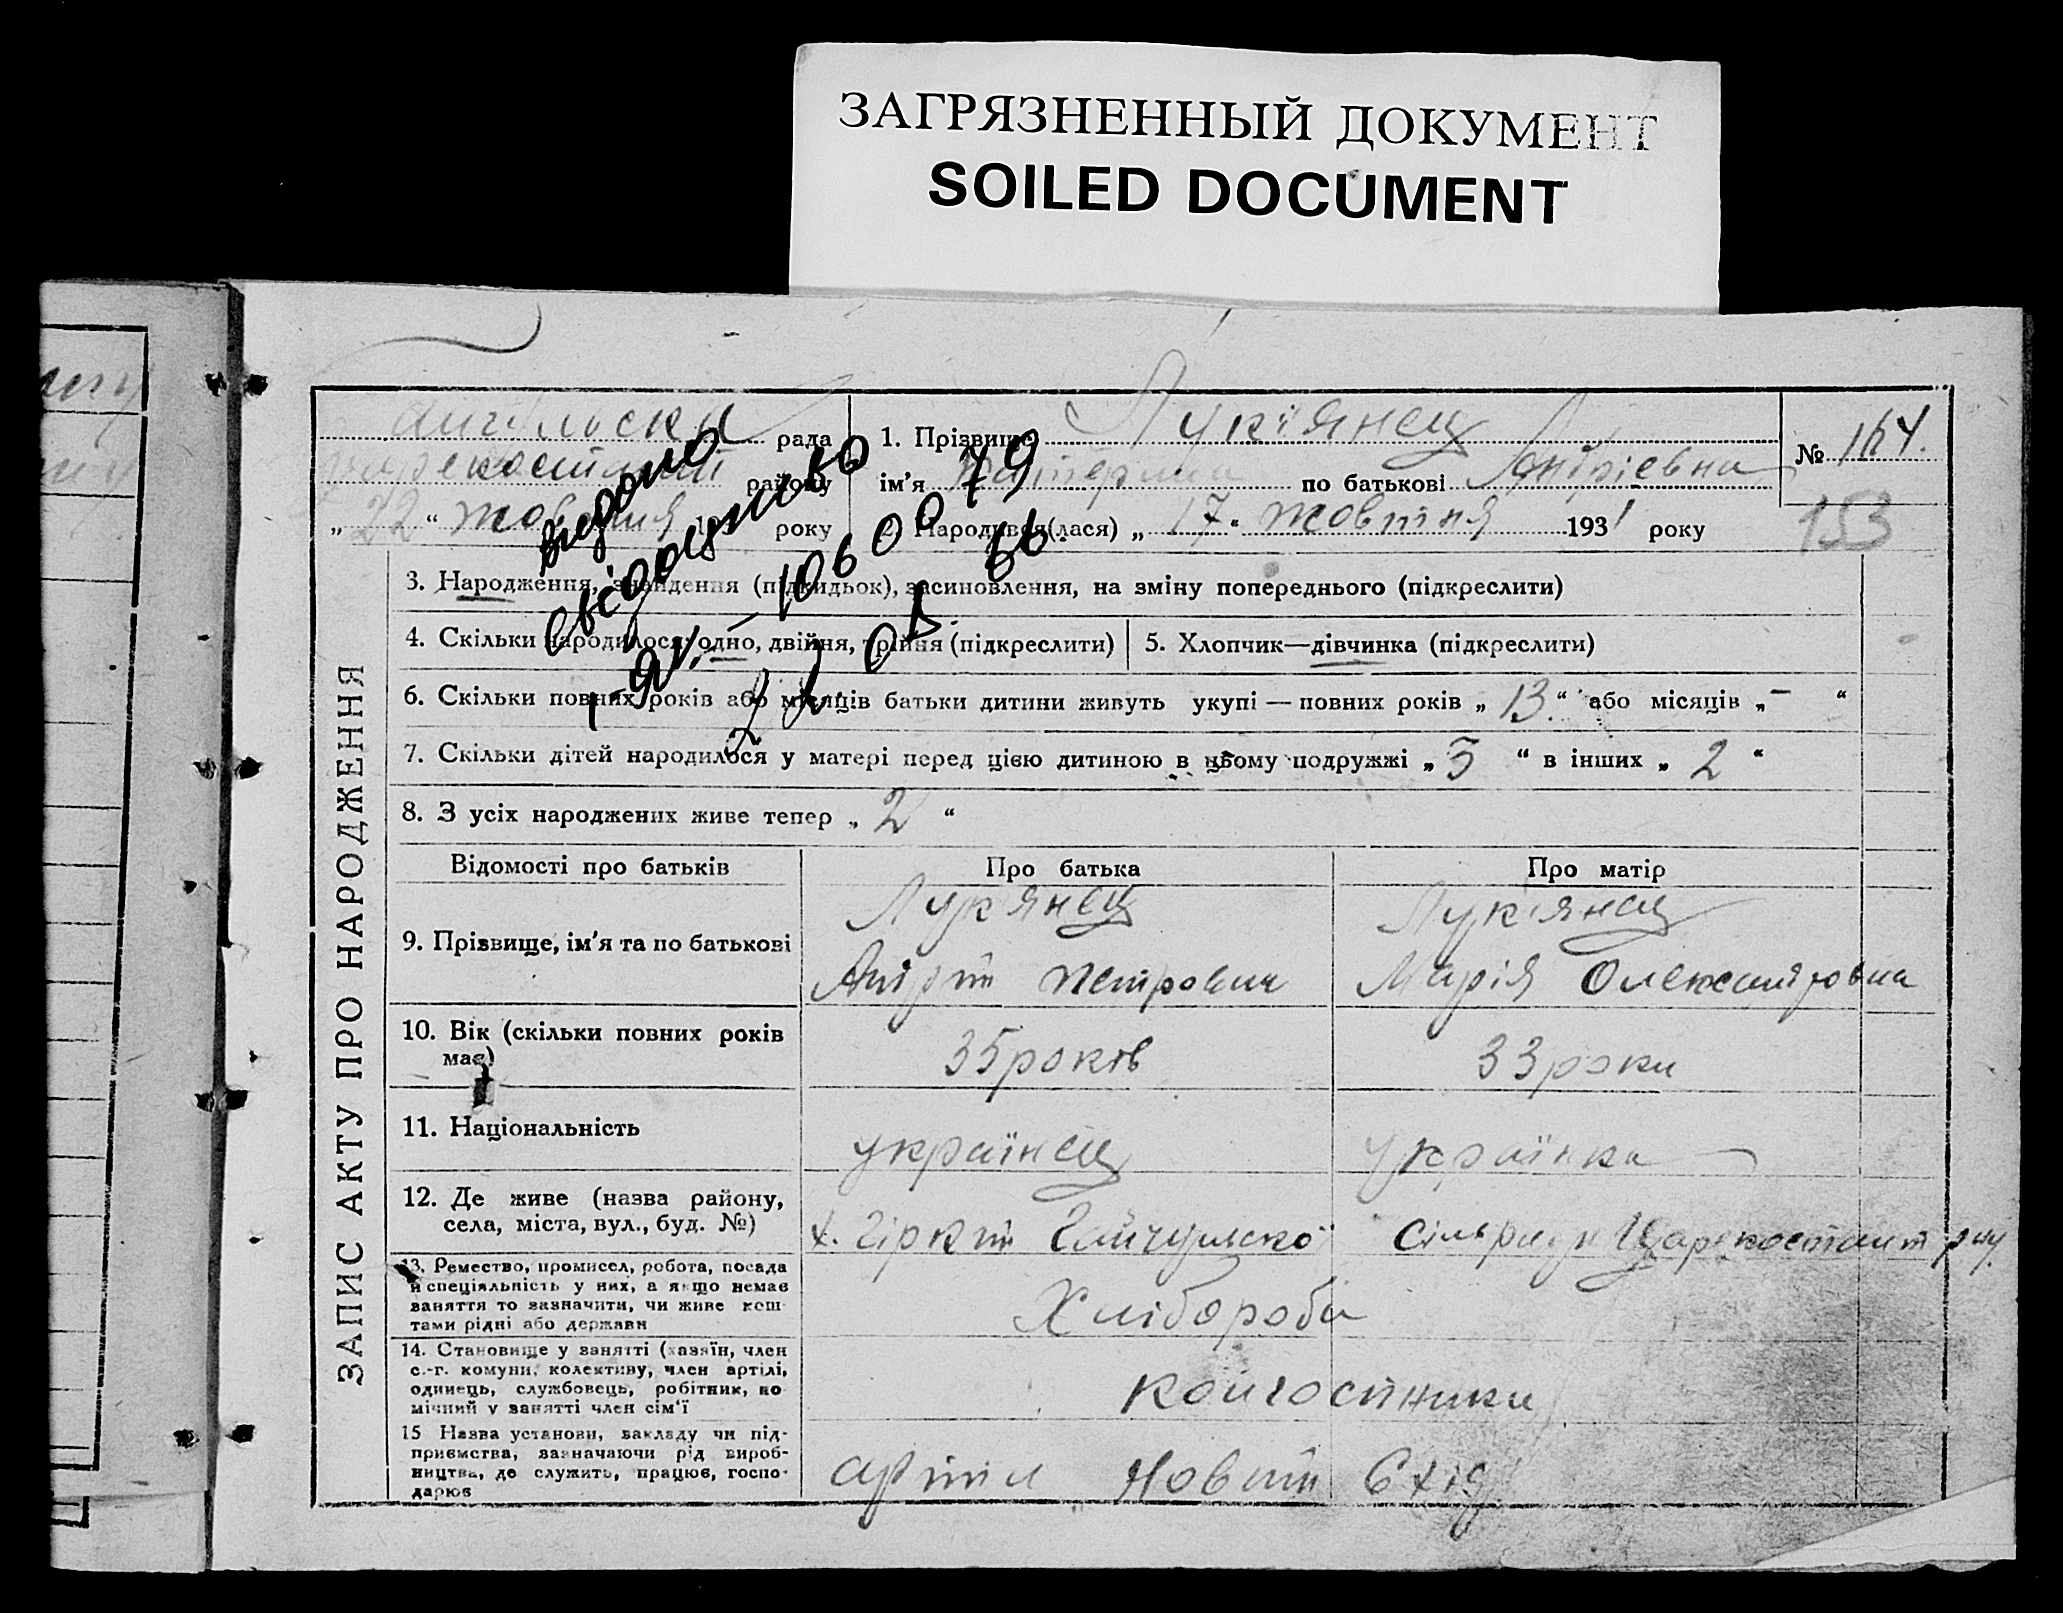 ЗАГРЯЗНЕННЫЙ ДОКУМЕНТ
SOILED DOCUMENT
рада
району
„ 22 “ жовтня 19 року
1. Прізвище Лук'янец
ім'я по батькові Андріевна
2. Народився(лася) „ 17 “ жовтня 1931 року
№ 164.
153
видано
свідоцтво
1-ЯЧ.- 1060079
22 04 66.
ЗАПИС АКТУ ПРО НАРОДЖЕННЯ
3. Народження, знайдення (підкидьок), засиновлення, на зміну попереднього (підкреслити)
4. Скільки народилося: одно, двійня, трійня (підкреслити)
5. Хлопчик—дівчинка (підкреслити)
6. Скільки повних років або місяців батьки дитини живуть укупі — повних років „ 13 “ або місяців „ – “
7. Скільки дітей народилося у матері перед цією дитиною в цьому подружжі „ 5 “ в інших „ 2 “
8. З усіх народжених живе тепер „ 2 “
Відомості про батьків
Про батька
Про матір
9. Прізвище, ім'я та по батькові
Лук'янец
Андрій Петрович
Лук'янец
Марія Олександровна
10. Вік (скільки повних років має)
35 років
33 роки
11. Національність
українец
українка
12. Де живе (назва району,
села, міста, вул., буд. №)
х. Гіркий Гайчульскої сільради Царекостант р-ну
13. Ремество, промисел, робота, посада
й спеціяльність у них, а якщо немає
заняття то зазначити, чи живе кош-
тами рідні або держави
Хлібороби
14. Становище у занятті (хазяїн, член
с.-г. комуни, колективу, член артілі,
одинець, службовець, робітник, по
мічний у занятті член сім'ї
колгоспники
15 Назва установи, закладу чи під-
приємства, зазначаючи рід вироб-
ництва, де служить, працює, госпо-
дарює
артіл Новий Схід